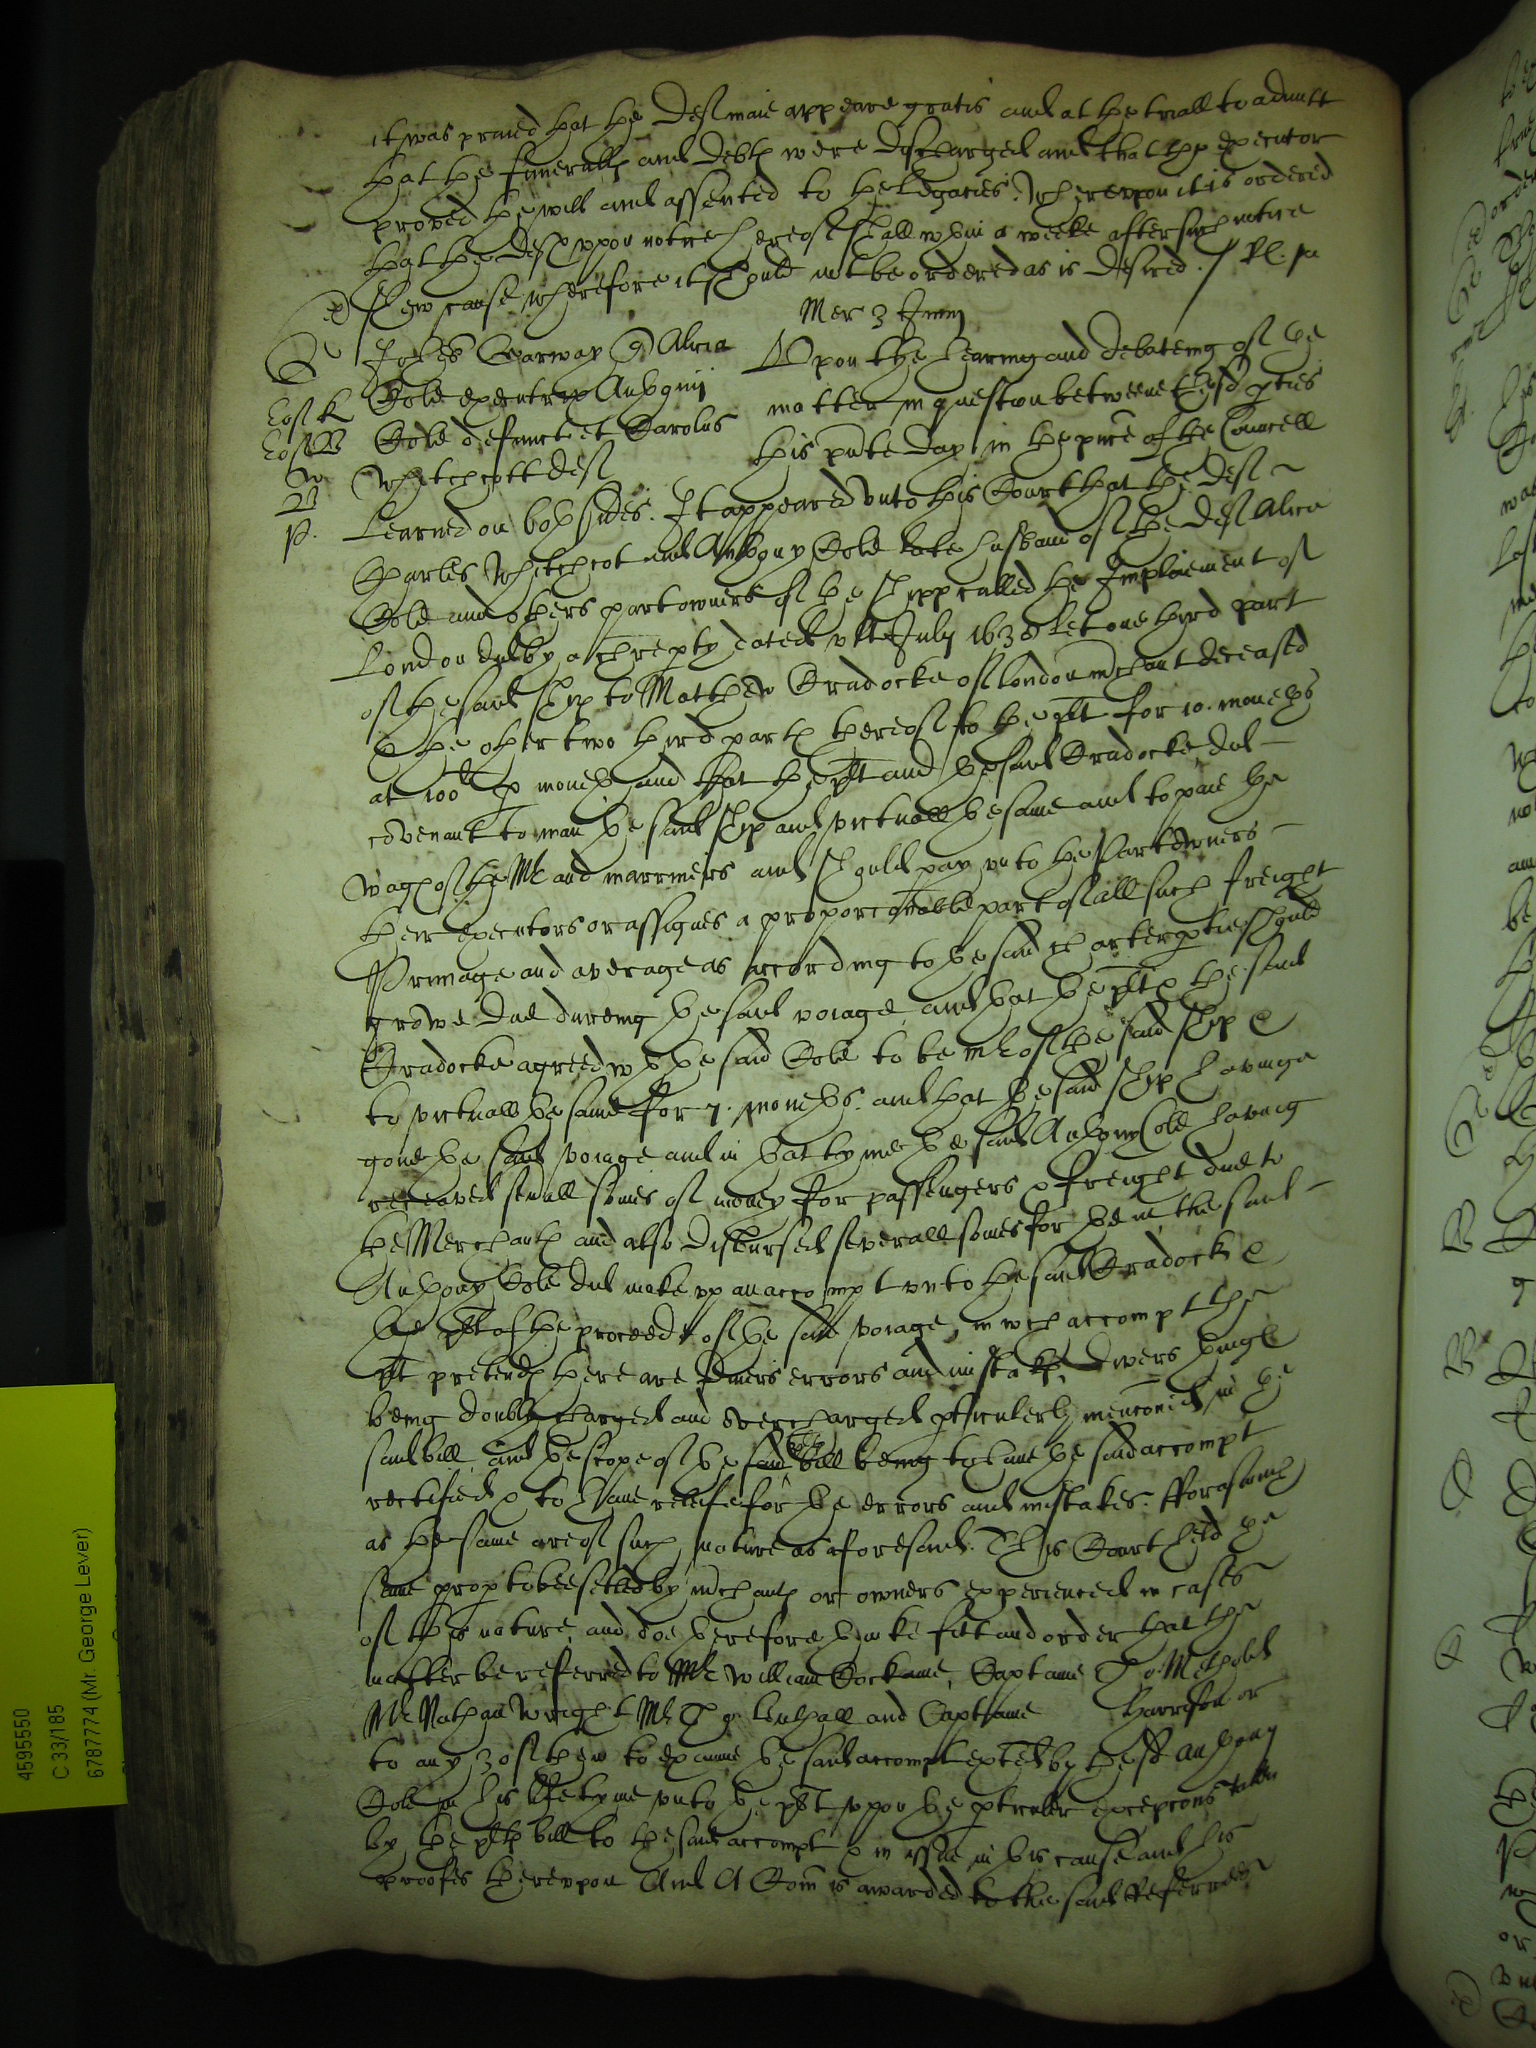 it was praied that the Deft maie appeare gratis and at the triall to admitt
that the funeralls and debts were discharged and that the executor
proved the will and assented to the Legacies. Wherevpon it is ordered
that the deft vppon notice hereof shall wthin a weeke after such notice
shew cause wherefore it should not be ordered as is desired
Mer 3 Junij
Johes Garway Alicia
Cole executrix Anthonij
Cole defunct et Carolus
Whitchcott deft
Vpon the hearing and debateing of the
matter in question betweene the sd pties
this pnte day in the pnce of the Councell
Learned on both sides. It appeared vnto this Court that the deft
Charles Whitchcot and Anthony Cole late husband of the deft Alice
Cole and others partowners of the shipp called the Imploiement of
London did by a chrepty dated vlt July 1638 Let one third part
of the said ship to Mathew Cradocke of London mchant deceased
the other two third parts thereof to the plt for 10. moneths
at 100l p moneth and that the plt and the said Cradocke did
covenant to man the said ship and victuall the same and to paie the
wages of the Mr and marriners and should pay vnto the Partowners
their executors or assignes a proporconable part of all such freight
Primage and average as according to the said charterptie should
growe due dureing the said voiage and that the plt the said
Cradocke agreed wth the said Cole to be mr of the said ship
to victuall the same for 7. moneths. and that the said ship haveinge
gone the said voiage and in that tyme the said Anthony Cole haveing
receaved severall somes of money for passengers freight due to
the Merchants and also disbursed severall somes for them the said
Anthony Cole did make vp an accompt vnto the said Cradock
the plt of the proceeds of the said voiage, in wch accompt the
plt pretends there are divers errors and mistakes, divers things
being doubly charged and overcharged pticulerly menconed in the
said bill and the scope of the said bill being to have the said accompt
rectified to have releife for the errors and mistakes. fforasmuch
as the same are of such nature as aforesaid. This Court held the
same proper to bee setled by mchants or owners experienced in cases
of this nature and doe therefore thinke fitt and order that the
matter be referred to Mr William Cockaine, Captaine Tho: Methold
Mr Nathan Wright Mr Tho: Lenthall and Captaine Harrison or
to any 3 of them to examine the said accompt by the sd Anthony
Cole in his lifetyme vnto the plt vppon the pticuler excepcons taken
by the plts bill to the said accompt in issue in this cause and his
proofes therevpon And A Com is awarded to the said Referrees
4595550
C 33/185
6787774 (Mr. George Lever)